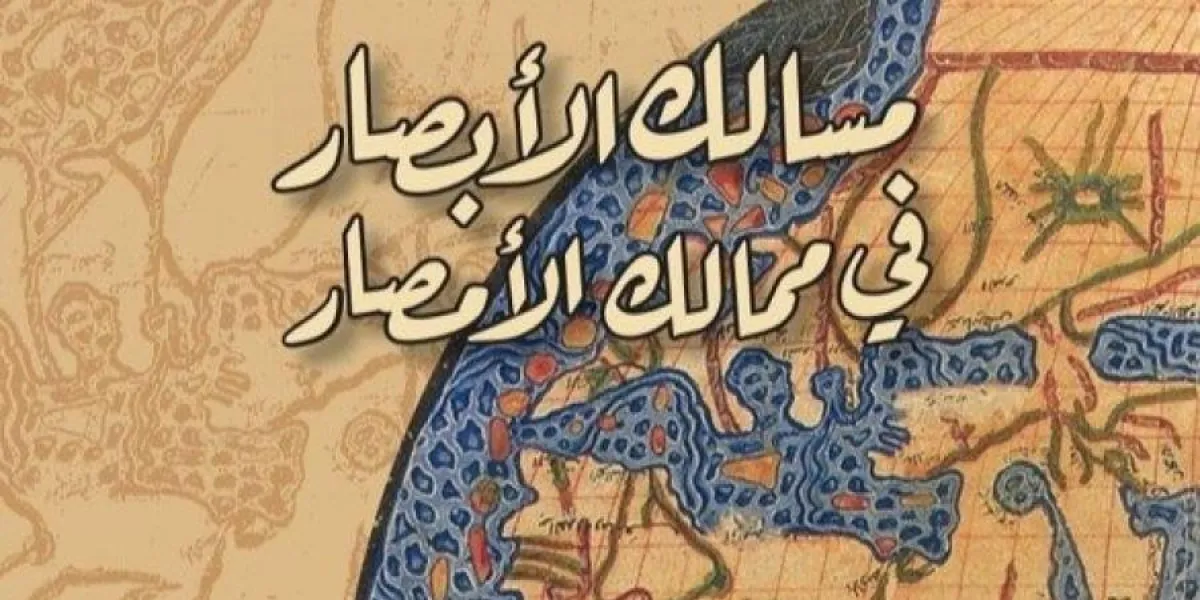 مسالك الأبصار
في ممالك الأمصار